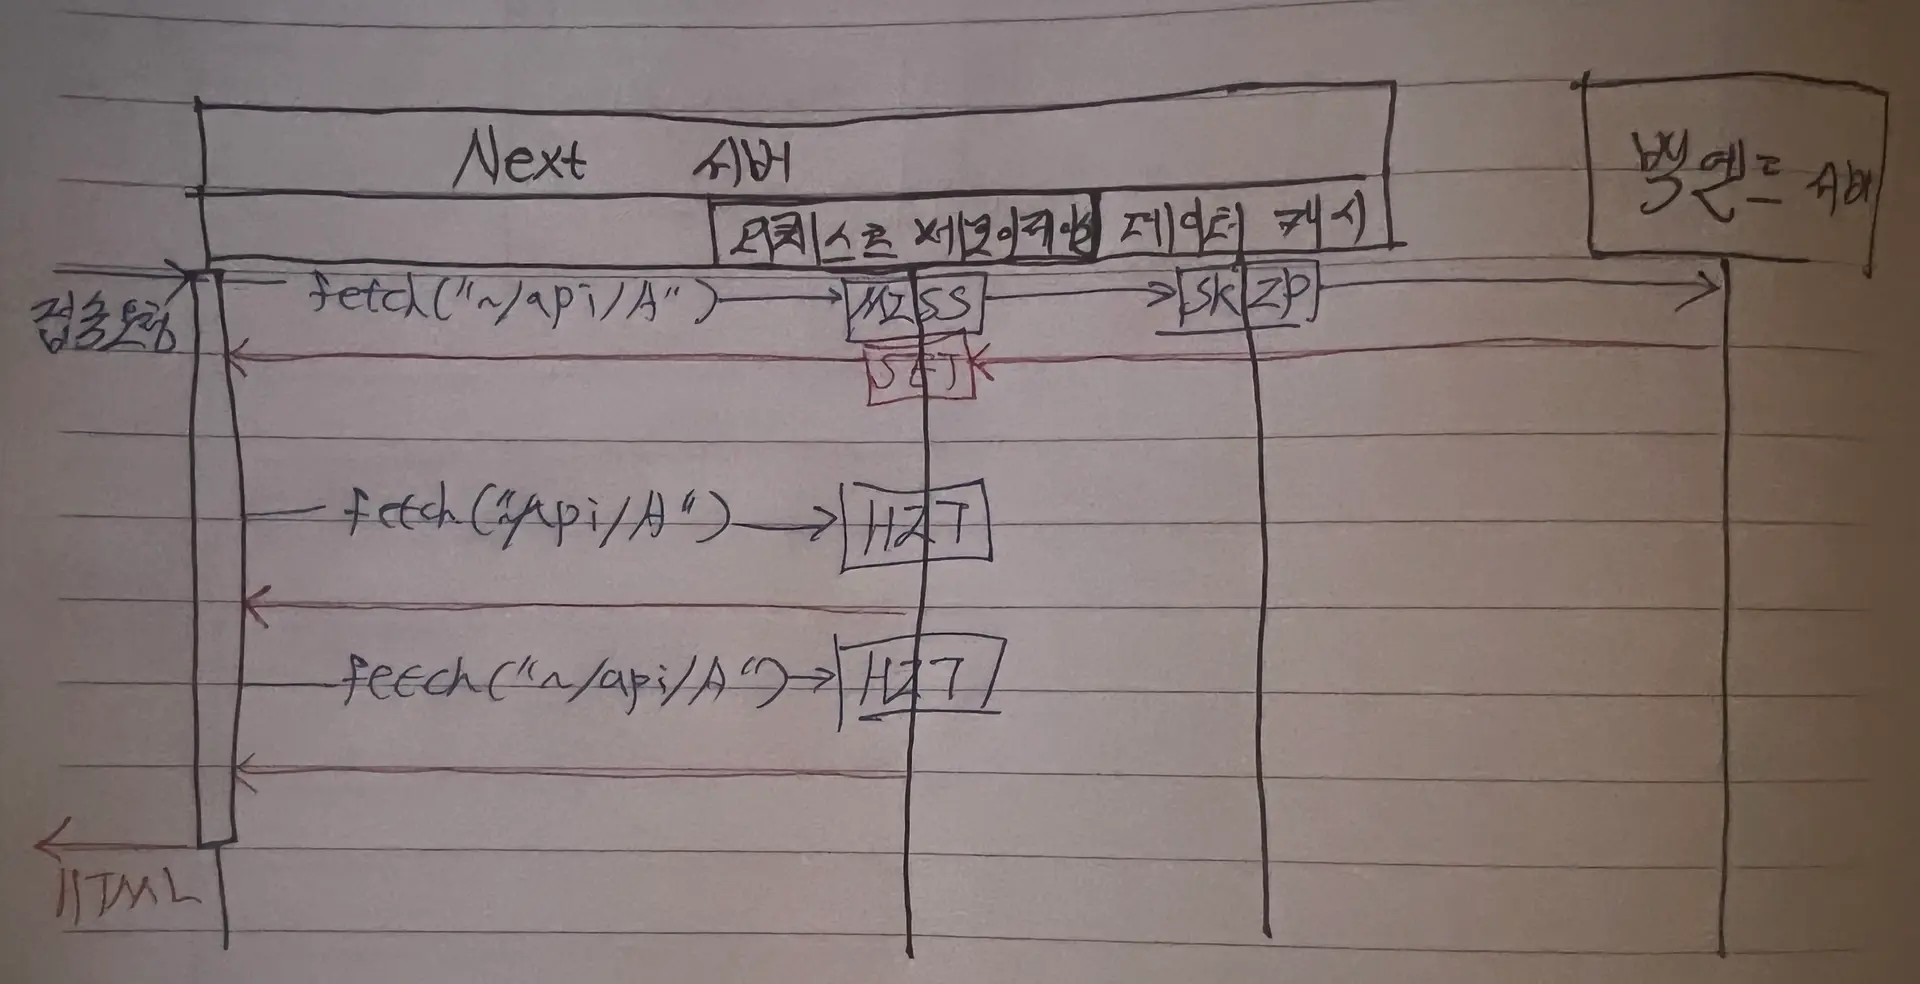 Next 서버
백엔드 서버
리퀘스트 메모이제이션 데이터 캐시
접속요청
fetch("~/api/A") MISS SKIP
SET
fetch("~/api/A") HIT
fetch("~/api/A") HIT
HTML